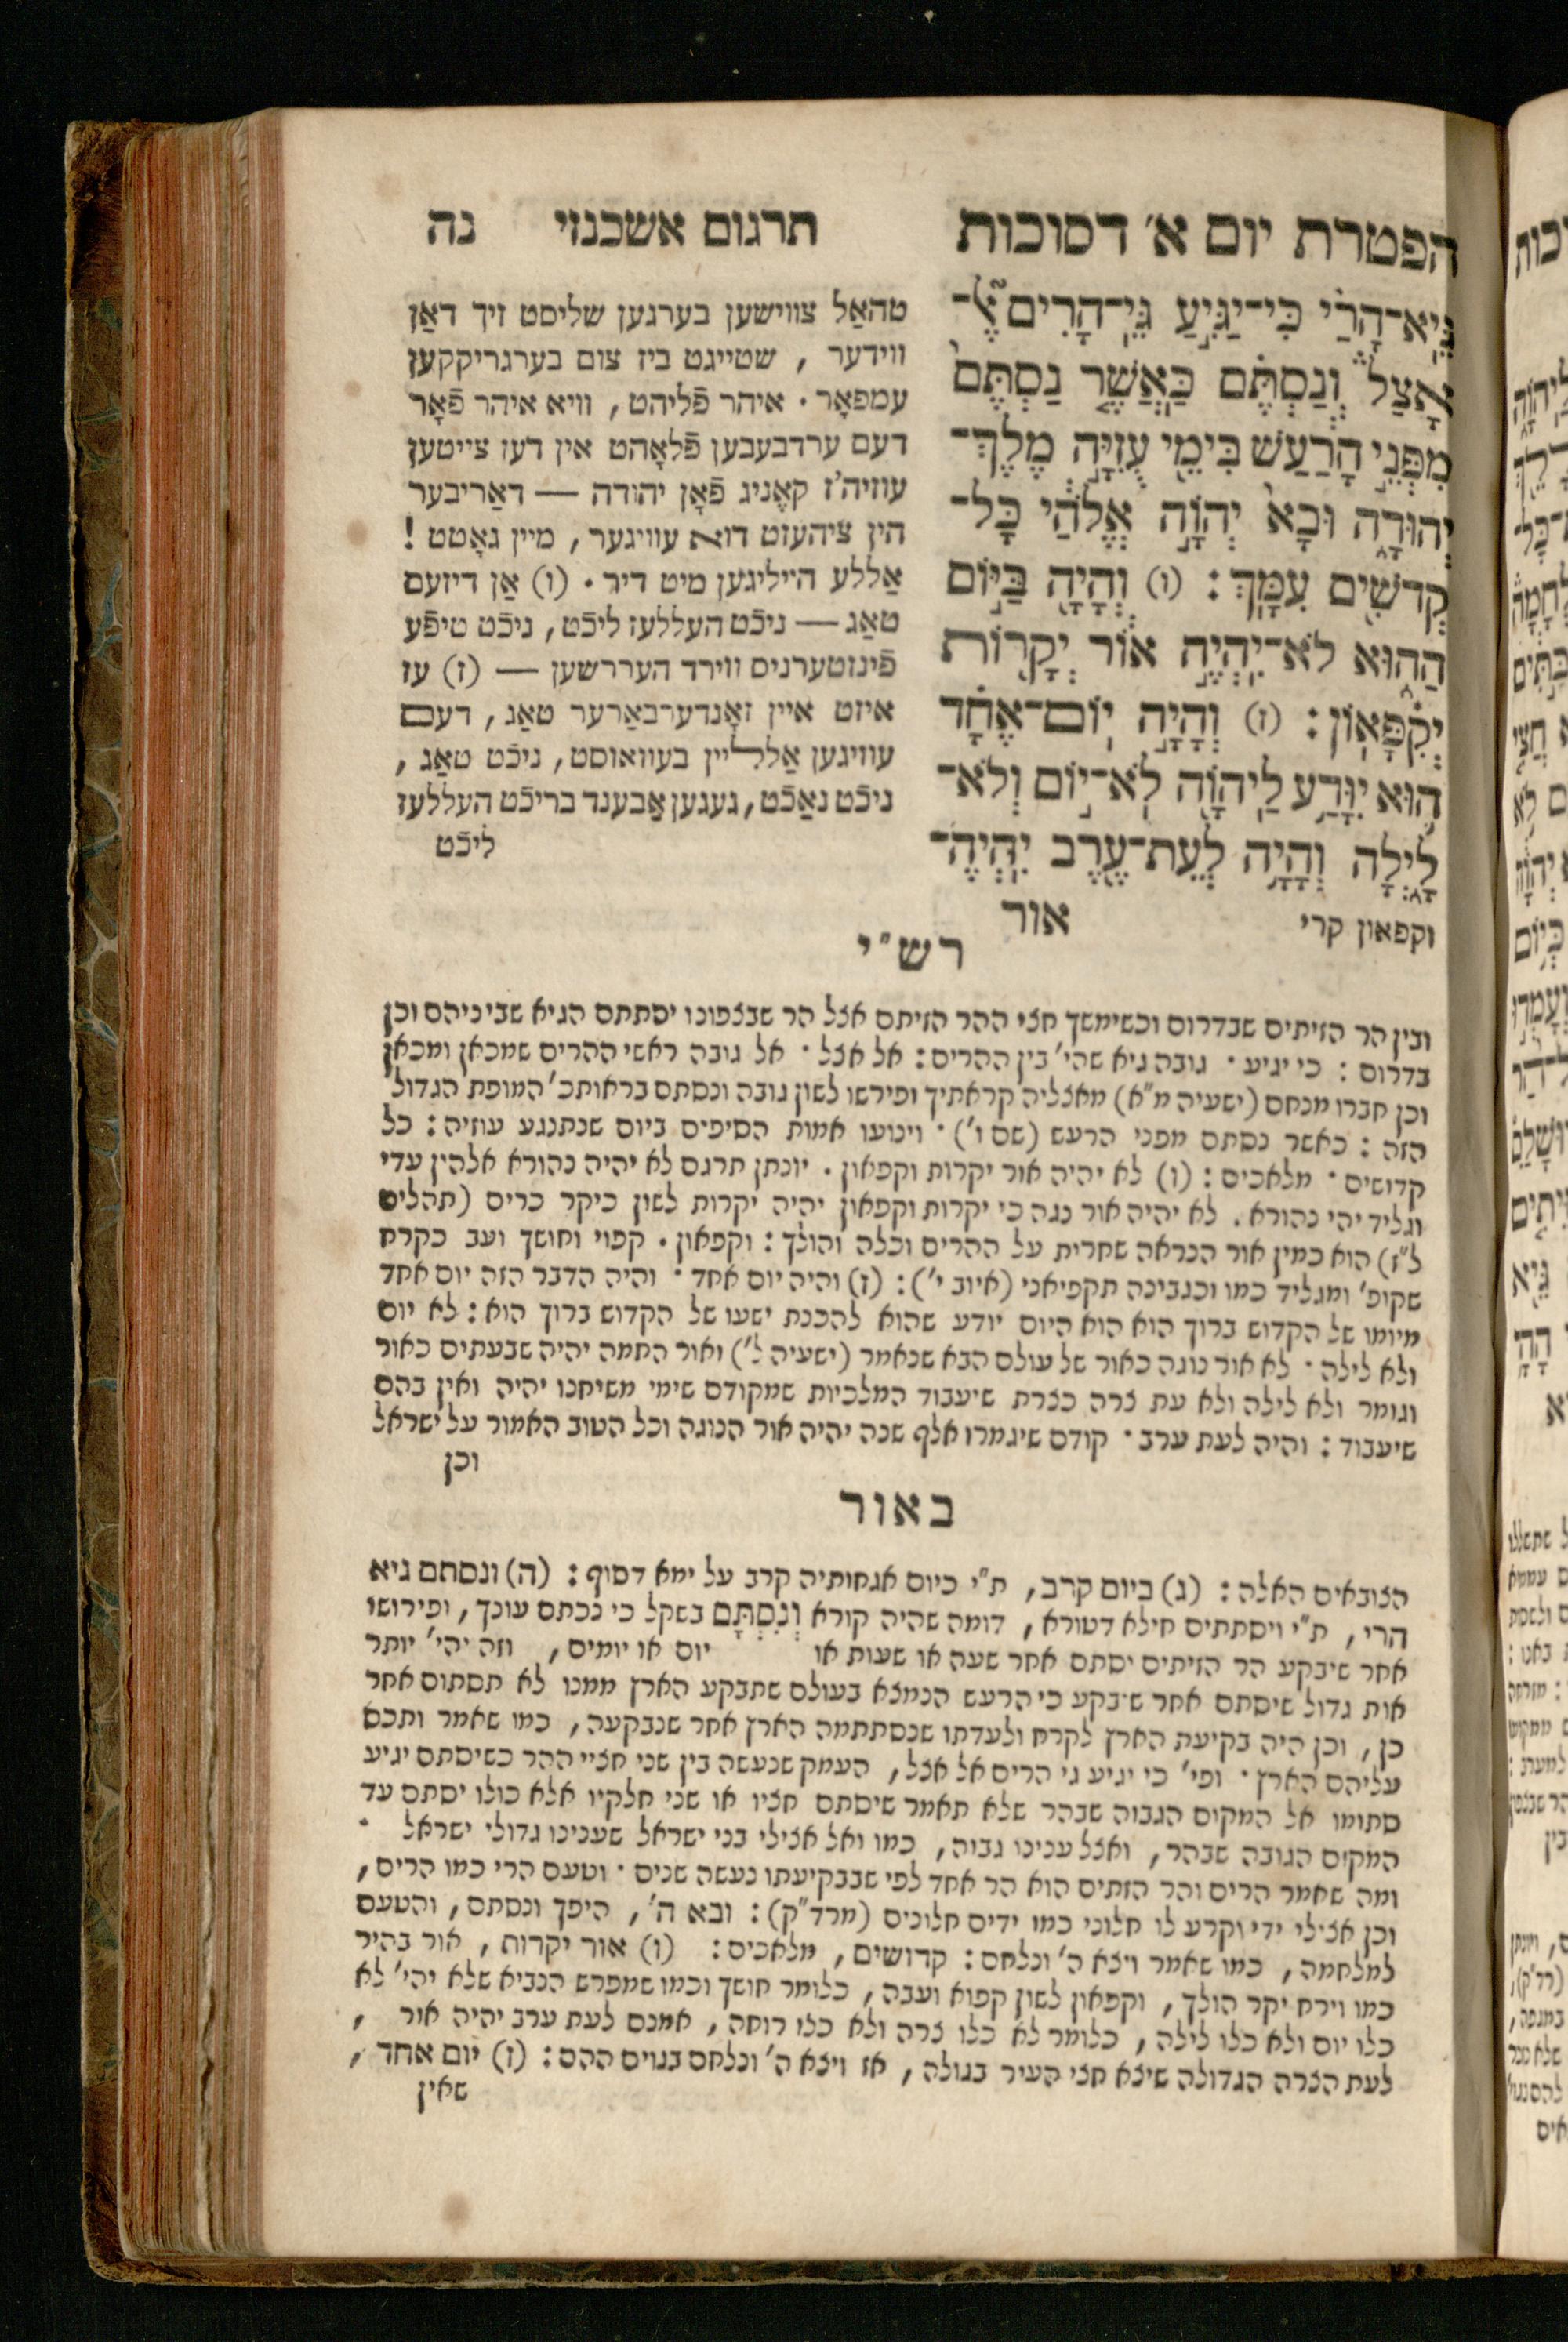 הפטרת יום א׳ דסוכות
גֵּֽיא־הָרַ֗י כִּי־יַגִּ֣יעַ גֵּֽי־הָרִים֮ אֶל־
אָצַל֒ וְנַסְתֶּ֗ם כַּאֲשֶׁ֤ר נַסְתֶּם֙
מִפְּנֵ֣י הָרַ֔עַשׁ בִּימֵ֖י עֻזִּיָּ֣ה מֶֽלֶךְ־
יְהוּדָ֑ה וּבָא֙ יְהוָ֣ה אֱלֹהַ֔י כָּל־
קְדשִׁ֖ים עִמָּֽךְ׃ (ו) וְהָיָ֖ה בַּיּ֣וֹם
הַה֑וּא לֹא־יִֽהְיֶ֣ה א֔וֹר יְקָר֖וֹת
יְקִפָּאֽוֹן׃ (ז) וְהָיָ֣ה יֽוֹם־אֶחָ֗ד
ה֛וּא יִוָּדַ֥ע לַֽיהוָֹ֖ה לֹא־י֣וֹם וְלֹא־
לָ֑יְלָה וְהָיָ֥ה לְעֵֽת־עֶ֖רֶב יִֽהְיֶה־
אור
וקפאון קרי
תרגום אשכנזי
נה
טהאַל צווישען בערגען שליסט זיך דאַן
ווידער , שטייגט ביז צום בערגריקקען
עמפאָר . איהר פֿליהט , וויא איהר פֿאָר
דעם ערדבעבען פֿלאָהט אין דען צייטען
עוזיה'ז קאֶניג פֿאָן יהודה — דאַריבער
הין ציהעזט דוא עוויגער , מיין גאָטט !
אַללע הייליגען מיט דיר . (ו) אַן דיזעם
טאַג — ניכֿט העללעז ליכֿט , ניכֿט טיפֿע
פֿינזטערניס ווירד העררשען — (ז) עז
איזט איין זאָנדערבאַרער טאַג , דעם
עוויגען אַלליין בעוואוסט , ניכֿט טאַג ,
ניכֿט נאַכֿט , געגען אַבענד בריכֿט העללעז
ליכֿט
רש״י
ובין הר הזיתים שבדרום וכשימשך חצי ההר הזיתם אצל הר שבצפונו יסתתם הגיא שביניהם וכן
בדרום : כי יגיע · גובה גיא שהי' בין ההרים : אל אצל · אל גובה ראשי ההרים שמכאן ומכאן
וכן חברו מנחם (ישעיה מ״א) מאצליה קראתיך ופירשו לשון גובה ונסתם בראותכ' המופת הגדול
הזה : כאשר נסתם מפני הרעש (שם ו') · וינועו אמות הסיפים ביום שנתנגע עוזיה : כל
קדושים · מלאכים : (ו) לא יהיה אור יקרות וקפאון . יונתן תרגם לא יהיה נהורא אלהין עדי
וגליד יהי נהורא . לא יהיה אור נגה כי יקרות וקפאון יהיה יקרות לשון כיקר כרים (תהלים
ל״ז) הוא כמין אור הנראה שחרית על ההרים וכלה והולך : וקפאון . קפוי וחושך ועב כקרח
שקופ' ומגליד כמו וכגבינה תקפיאני (איוב י') : (ז) והיה יום אחד · והיה הדבר הזה יום אחד
מיומו של הקדוש ברוך הוא הוא היום יודע שהוא להכנת ישעו של הקדוש ברוך הוא : לא יום
ולא לילה · לא אור נוגה כאור של עולם הבא שנאמר (ישעיה ל') ואור החמה יהיה שבעתים כאור
וגומר ולא לילה ולא עת צרה כצרת שיעבוד המלכיות שמקודם שימי משיחנו יהיה ואין בהם
שיעבוד : והיה לעת ערב · קודם שיגמרו אלף שנה יהיה אור הנוגה וכל הטוב האמור על ישראל
וכן
באור
הצובאים האלה : (ג) ביום קרב , ת״י כיום אגחותיה קרב על ימא דסוף : (ה) ונסתם גיא
הרי , ת״י ויסתתים חילא דטורא , דומה שהיה קורא וְנִסְתָּם בשקל כי נכתם עונך , ופירושו
אחר שיבקע הר הזיתים יסתם אחר שעה או שעות או יום או יומים , וזה יהי' יותר
אות גדול שיסתם אחר שיבקע כי הרעש הנמצא בעולם שתבקע הארץ ממנו לא תסתום אחר
כן , וכן היה בקיעת הארץ לקרח ולעדתו שנסתתמה הארץ אחר שנבקעה , כמו שאמר ותכס
עליהם הארץ · ופי' כי יגיע גי הרים אל אצל , העמק שנעשה בין שני חציי ההר כשיסתם יגיע
סתומו אל המקום הגבוה שבהר שלא תאמר שיסתם חציו או שני חלקיו אלא כולו יסתם עד
המקום הגובה שבהר , ואצל ענינו גבוה , כמו ואל אצילי בני ישראל שענינו גדולי ישראל ·
ומה שאמר הרים והר הזתים הוא הר אחד לפי שבבקיעתו נעשה שנים · וטעם הרי כמו הרים ,
וכן אצילי ידי וקרע לו חלוני כמו ידים חלונים (מרד״ק) : ובא ה' , היפך ונסתם , והטעם
למלחמה , כמו שאמר ויצא ה' ונלחם : קדושים , מלאכים : (ו) אור יקרות , אור בהיר
כמו וירח יקר הולך , וקפאון לשון קפוא ועבה , כלומר חושך וכמו שמפרש הנביא שלא יהי' לא
כלו יום ולא כלו לילה , כלומר לא כלו צרה ולא כלו רוחה , אמנם לעת ערב יהיה אור ,
לעת הצרה הגדולה שיצא חצי העיר בגולה , אז ויצא ה' ונלחם בגוים ההם : (ז) יום אחד ,
שאין